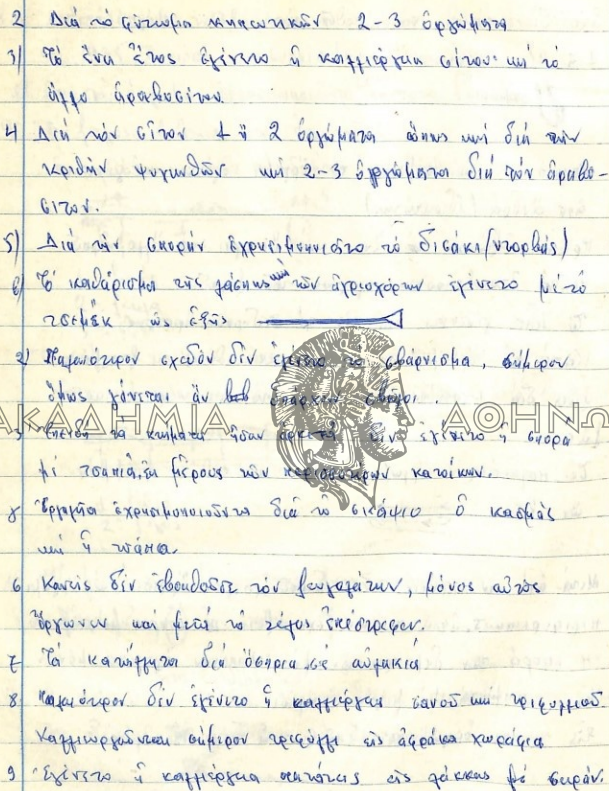 2 Διά τό φύτωμα κηπευτικῶν 2-3 ὀργώματα
3) Τό ἕνα ἔτος ἐγένετο ἡ καλλιέργεια σίτου καί τό
ἄλλο ἀραβοσίτου
4 Διά τόν σῖτον 1 ἤ 2 ὀργώματα ὅπως καί διά τήν
κριθήν ψυχανθῶν καί 2-3 ὀργώματα διά τόν ἀραβό-
σιτον.
5) Διά τήν σποράν ἐχρησιμοποιεῖτο τό δισάκι (ντορβάς)
6) Τό καθάρισμα τῆς λάσπης καί τῶν ἀγριοχόρτων ἐγένετο μέ τό
τσεμέκ ὡς ἑξῆς
2) Παλαιότερον σχεδόν δέν ἐγένετο τό σβάρνισμα, σήμερον
ὅμως γίνεται ἄν ὑπάρχουν σβῶλοι.
ΑΚΑΔΗΜΙΑ ΑΘΗΝΩ
Ἐπειδή τά κτήματα ἦσαν ἀρκετά δέν ἐγένετο ἡ σπορά
μέ τσαπιά, ἐκ μέρους τῶν περισσοτέρων κατοίκων.
γ Ἐργαλεῖα ἐχρησιμοποιοῦντο διά τό σκάψιμο ὁ κασμᾶς
καί ἡ τσάπα.
6 Κανείς δέν ἐβοηθοῦσε τόν ζευγολάτην, μόνος αὐτός
ὄργωνεν καί μετά τό τέλος ἐπέστρεφεν.
7 Τά κατάλληλα διά ὄσπρια σέ αὐλακιά
8 Παλαιότερον δέν ἐγένετο ἡ καλλιέργεια σανοῦ καί τριφυλλιοῦ
Καλλιεργοῦνται σήμερον τριφύλλι εἰς ἀφράκα χωράφια
9 Ἐγένετο ἡ καλλιέργεια πατάτας εἰς λάκκας μέ σειράν.